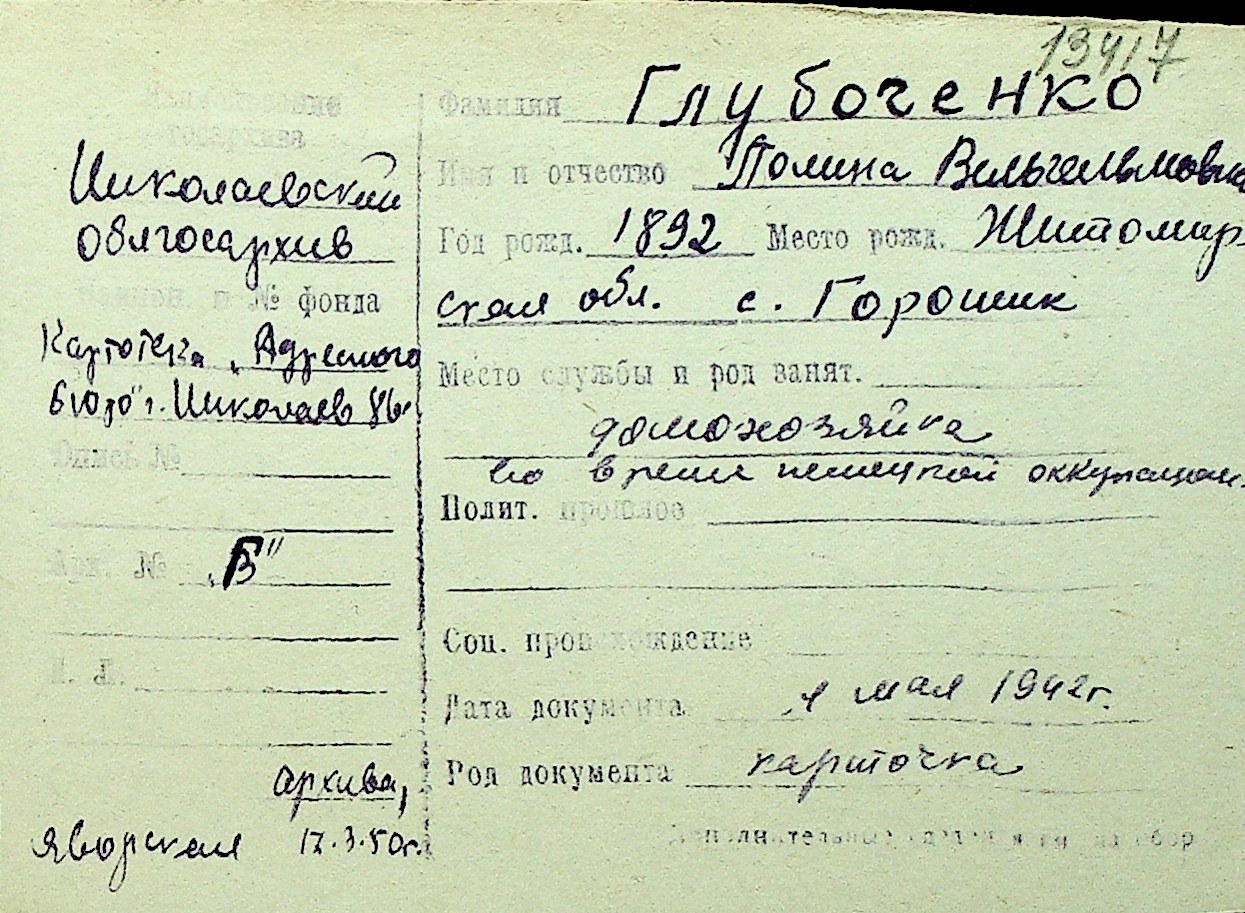 13417
Наименование
госархива
Николаевский
облгосархив
Наимен. и № фонда
Картотека „Адресного
бюро" г. Николаев
Опись №
Арх. №
Л. Л.
архива,
Яворская 17.3.50г.
Фамилия Глубоченко
Имя и отчество Полина Вильгельмовна
Год рожд. 1892 Место рожд. Житомир-
ская обл. с. Горошик
Место службы и род занят.
домохозяйка
во время немецкой оккупации
Полит. прошлое
Соц. происхождение
Дата документа 1 мая 1942г.
Род документа карточка
Дополнительные сведения на обор